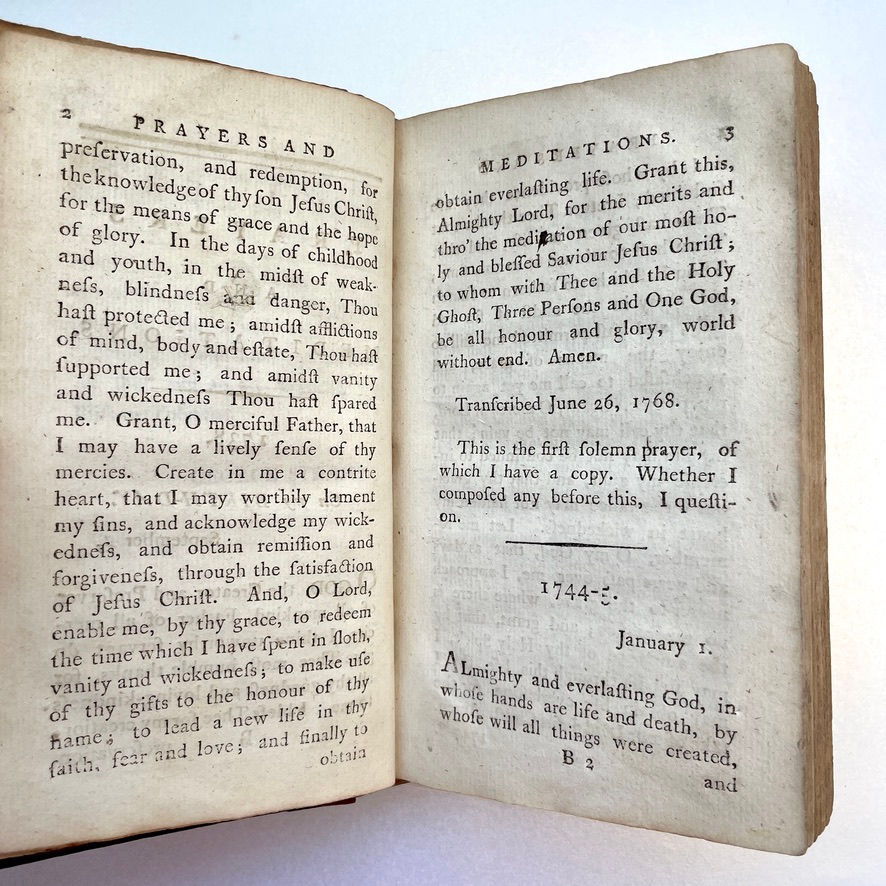 2 PRAYERS AND
preſervation, and redemption, for
the knowledge of thy ſon Jeſus Chriſt,
for the means of grace and the hope
of glory. In the days of childhood
and youth, in the midſt of weak-
neſs, blindneſs and danger, Thou
haſt protected me; amidſt afflictions
of mind, body and eſtate, Thou haſt
ſupported me; and amidſt vanity
and wickedneſs Thou haſt ſpared
me. Grant, O merciful Father, that
I may have a lively ſenſe of thy
mercies. Create in me a contrite
heart, that I may worthily lament
my ſins, and acknowledge my wick-
edneſs, and obtain remiſſion and
forgiveneſs, through the ſatisfaction
of Jeſus Chriſt. And, O Lord,
enable me, by thy grace, to redeem
the time which I have ſpent in ſloth,
vanity and wickedneſs; to make uſe
of thy gifts to the honour of thy
name; to lead a new life in thy
faith, fear and love; and finally to
obtain
MEDITATIONS. 3
obtain everlaſting life. Grant this,
Almighty Lord, for the merits and
thro' the mediation of our moſt ho-
ly and bleſſed Saviour Jeſus Chriſt;
to whom with Thee and the Holy
Ghoſt, Three Perſons and One God,
be all honour and glory, world
without end. Amen.
Tranſcribed June 26, 1768.
This is the firſt ſolemn prayer, of
which I have a copy. Whether I
compoſed any before this, I queſti-
on.
1744-5.
January 1.
ALmighty and everlaſting God, in
whoſe hands are life and death, by
whoſe will all things were created,
B 2
and